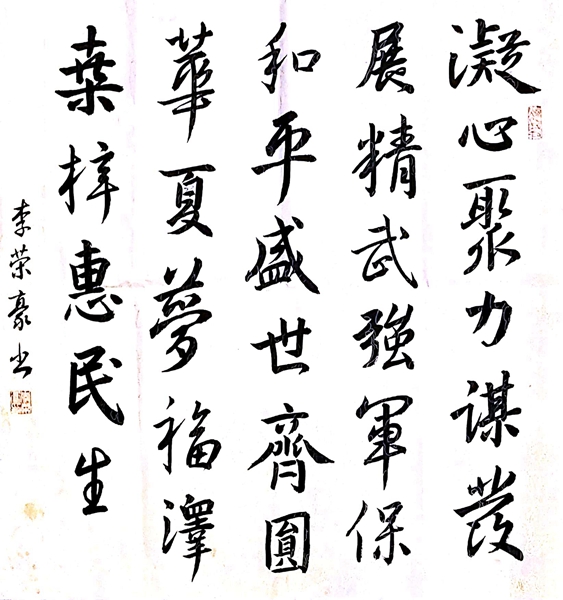 凝心聚力謀發
展精武強軍保
和平盛世齊圓
華夏夢福澤
桑梓惠民生
李荣豪书